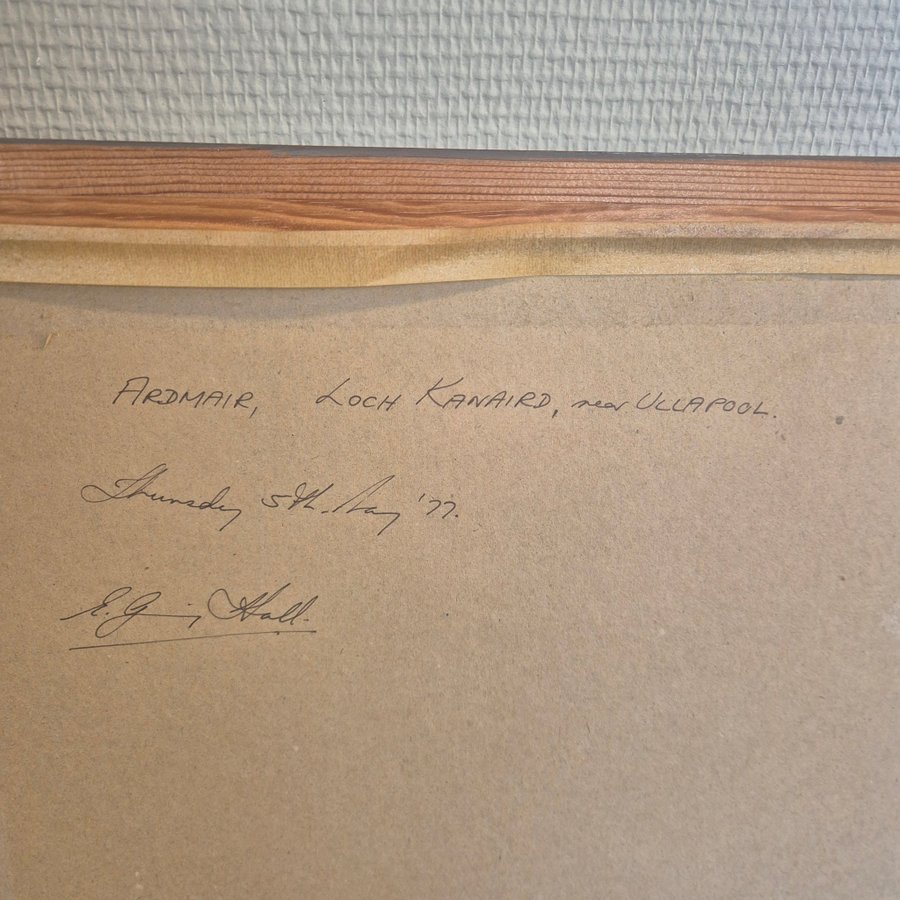 ARDMAIR, LOCH KANAIRD, near ULLAPOOL.
Thursday 5th. May '77.
E. G Hall.